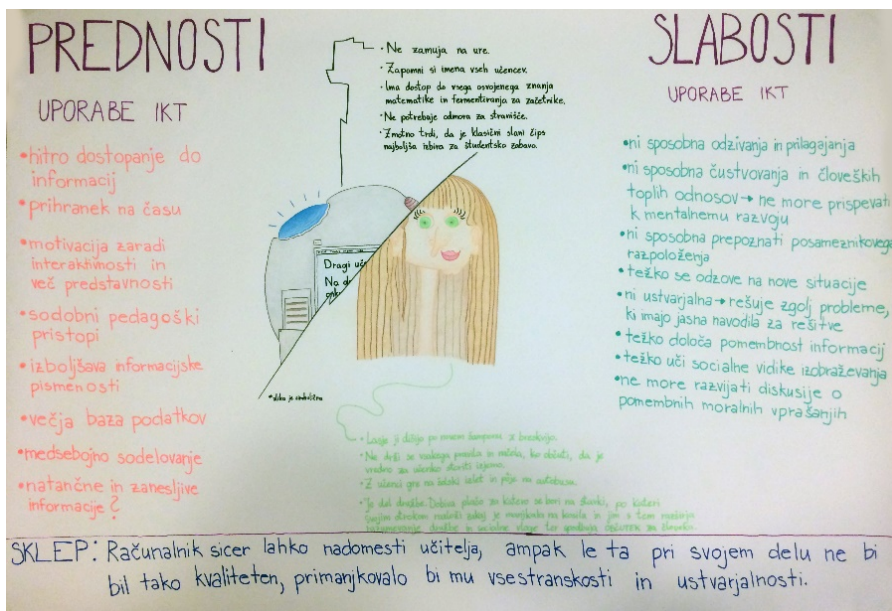 PREDNOSTI
UPORABE IKT
•hitro dostopanje do
informacij
•prihranek na času
•motivacija zaradi
interaktivnosti in
več predstavnosti
•sodobni pedagoški
pristopi
•izboljšava informacijske
pismenosti
•večja baza podatkov
•medsebojno sodelovanje
•natančne in zanesljive
informacije?
• Ne zamuja na ure.
• Zapomni si imena vseh učencev.
• Ima dostop do vsega osvojenega znanja
matematike in fermentiranja za začetnike.
• Ne potrebuje odmora za stranišče.
• Zmotno trdi, da je klasični slani čips
najboljša izbira za študentsko zabavo.
Dragi uč
Na d
•slika je simbolična
• Lasje ji dišijo po novem šamponu z breskvijo.
• Ne drži se vsakega pravila in načela, ko občuti, da je
vredno za učenko storiti izjemo.
• Z učenci gre na šolski izlet in poje na avtobusu.
• Je del družbe. Dobiva plačo za katero se bori na stavki, po kateri
SLABOSTI
UPORABE IKT
•ni sposobna odzivanja in prilagajanja
•ni sposobna čustvovanja in človeških
toplih odnosov → ne more prispevati
k mentalnemu razvoju
•ni sposobna prepoznati posameznikovega
razpoloženja
•težko se odzove na nove situacije
•ni ustvarjalna → rešuje zgolj probleme,
ki imajo jasna navodila za rešitve
•težko določa pomembnost informacij
•težko uči socialne vidike izobraževanja
•ne more razvijati diskusije o
pomembnih moralnih vprašanjih
SKLEP: Računalnik sicer lahko nadomesti učitelja, ampak le ta pri svojem delu ne bi
bil tako kvaliteten, primanjkovalo bi mu vsestranskosti in ustvarjalnosti.